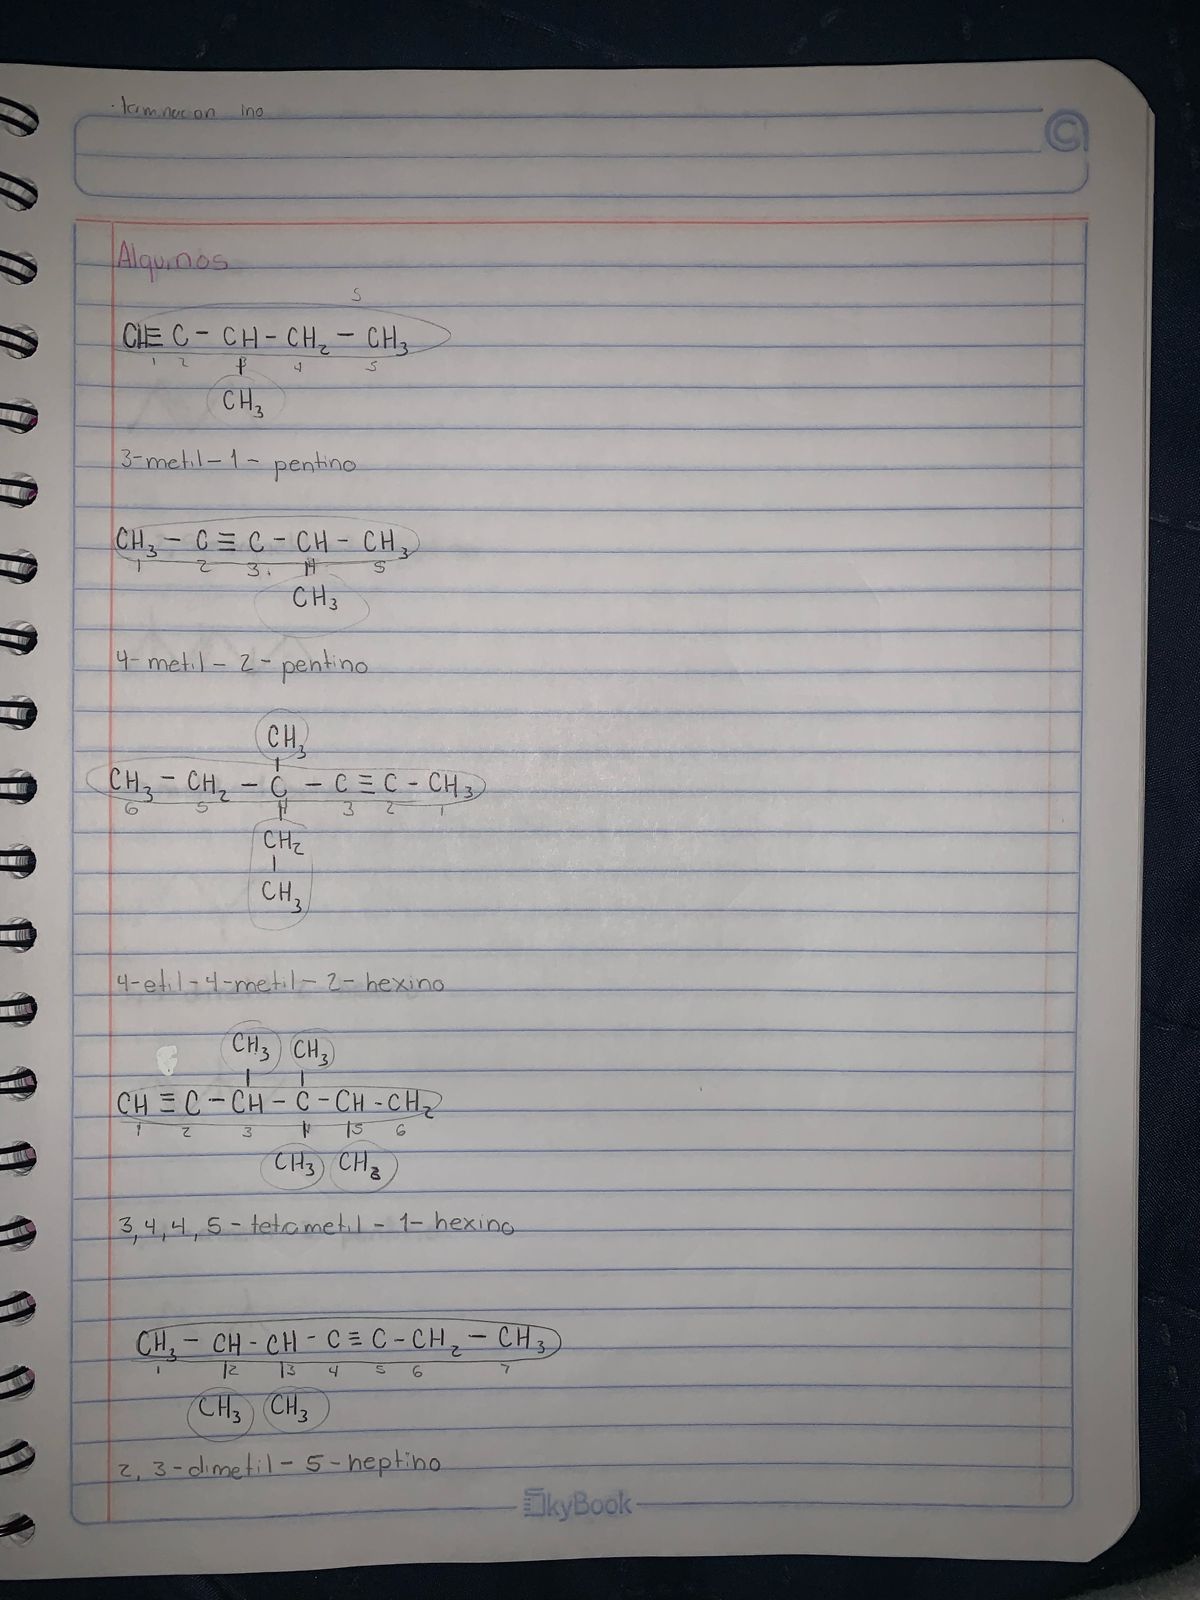 . terminacion ino
Alquinos
5
CH≡ C - CH - CH₂ - CH₃
1 2 3 4 5
CH₃
3-metil-1- pentino
CH₃ - C ≡ C - CH - CH₃
1 2 3. 4 5
CH₃
4-metil-2-pentino
CH₃
CH₃ - CH₂ - C - C ≡ C - CH₃
6 5 4 3 2 1
CH₂
CH₃
4-etil-4-metil-2-hexino
CH₃ CH₃
CH ≡ C - CH - C - CH - CH₂
1 2 3 4 5 6
CH₃ CH₃
3,4,4,5-tetrametil-1-hexino
CH₃ - CH - CH - C ≡ C - CH₂ - CH₃
1 2 3 4 5 6 7
CH₃ CH₃
2,3-dimetil-5-heptino
SkyBook